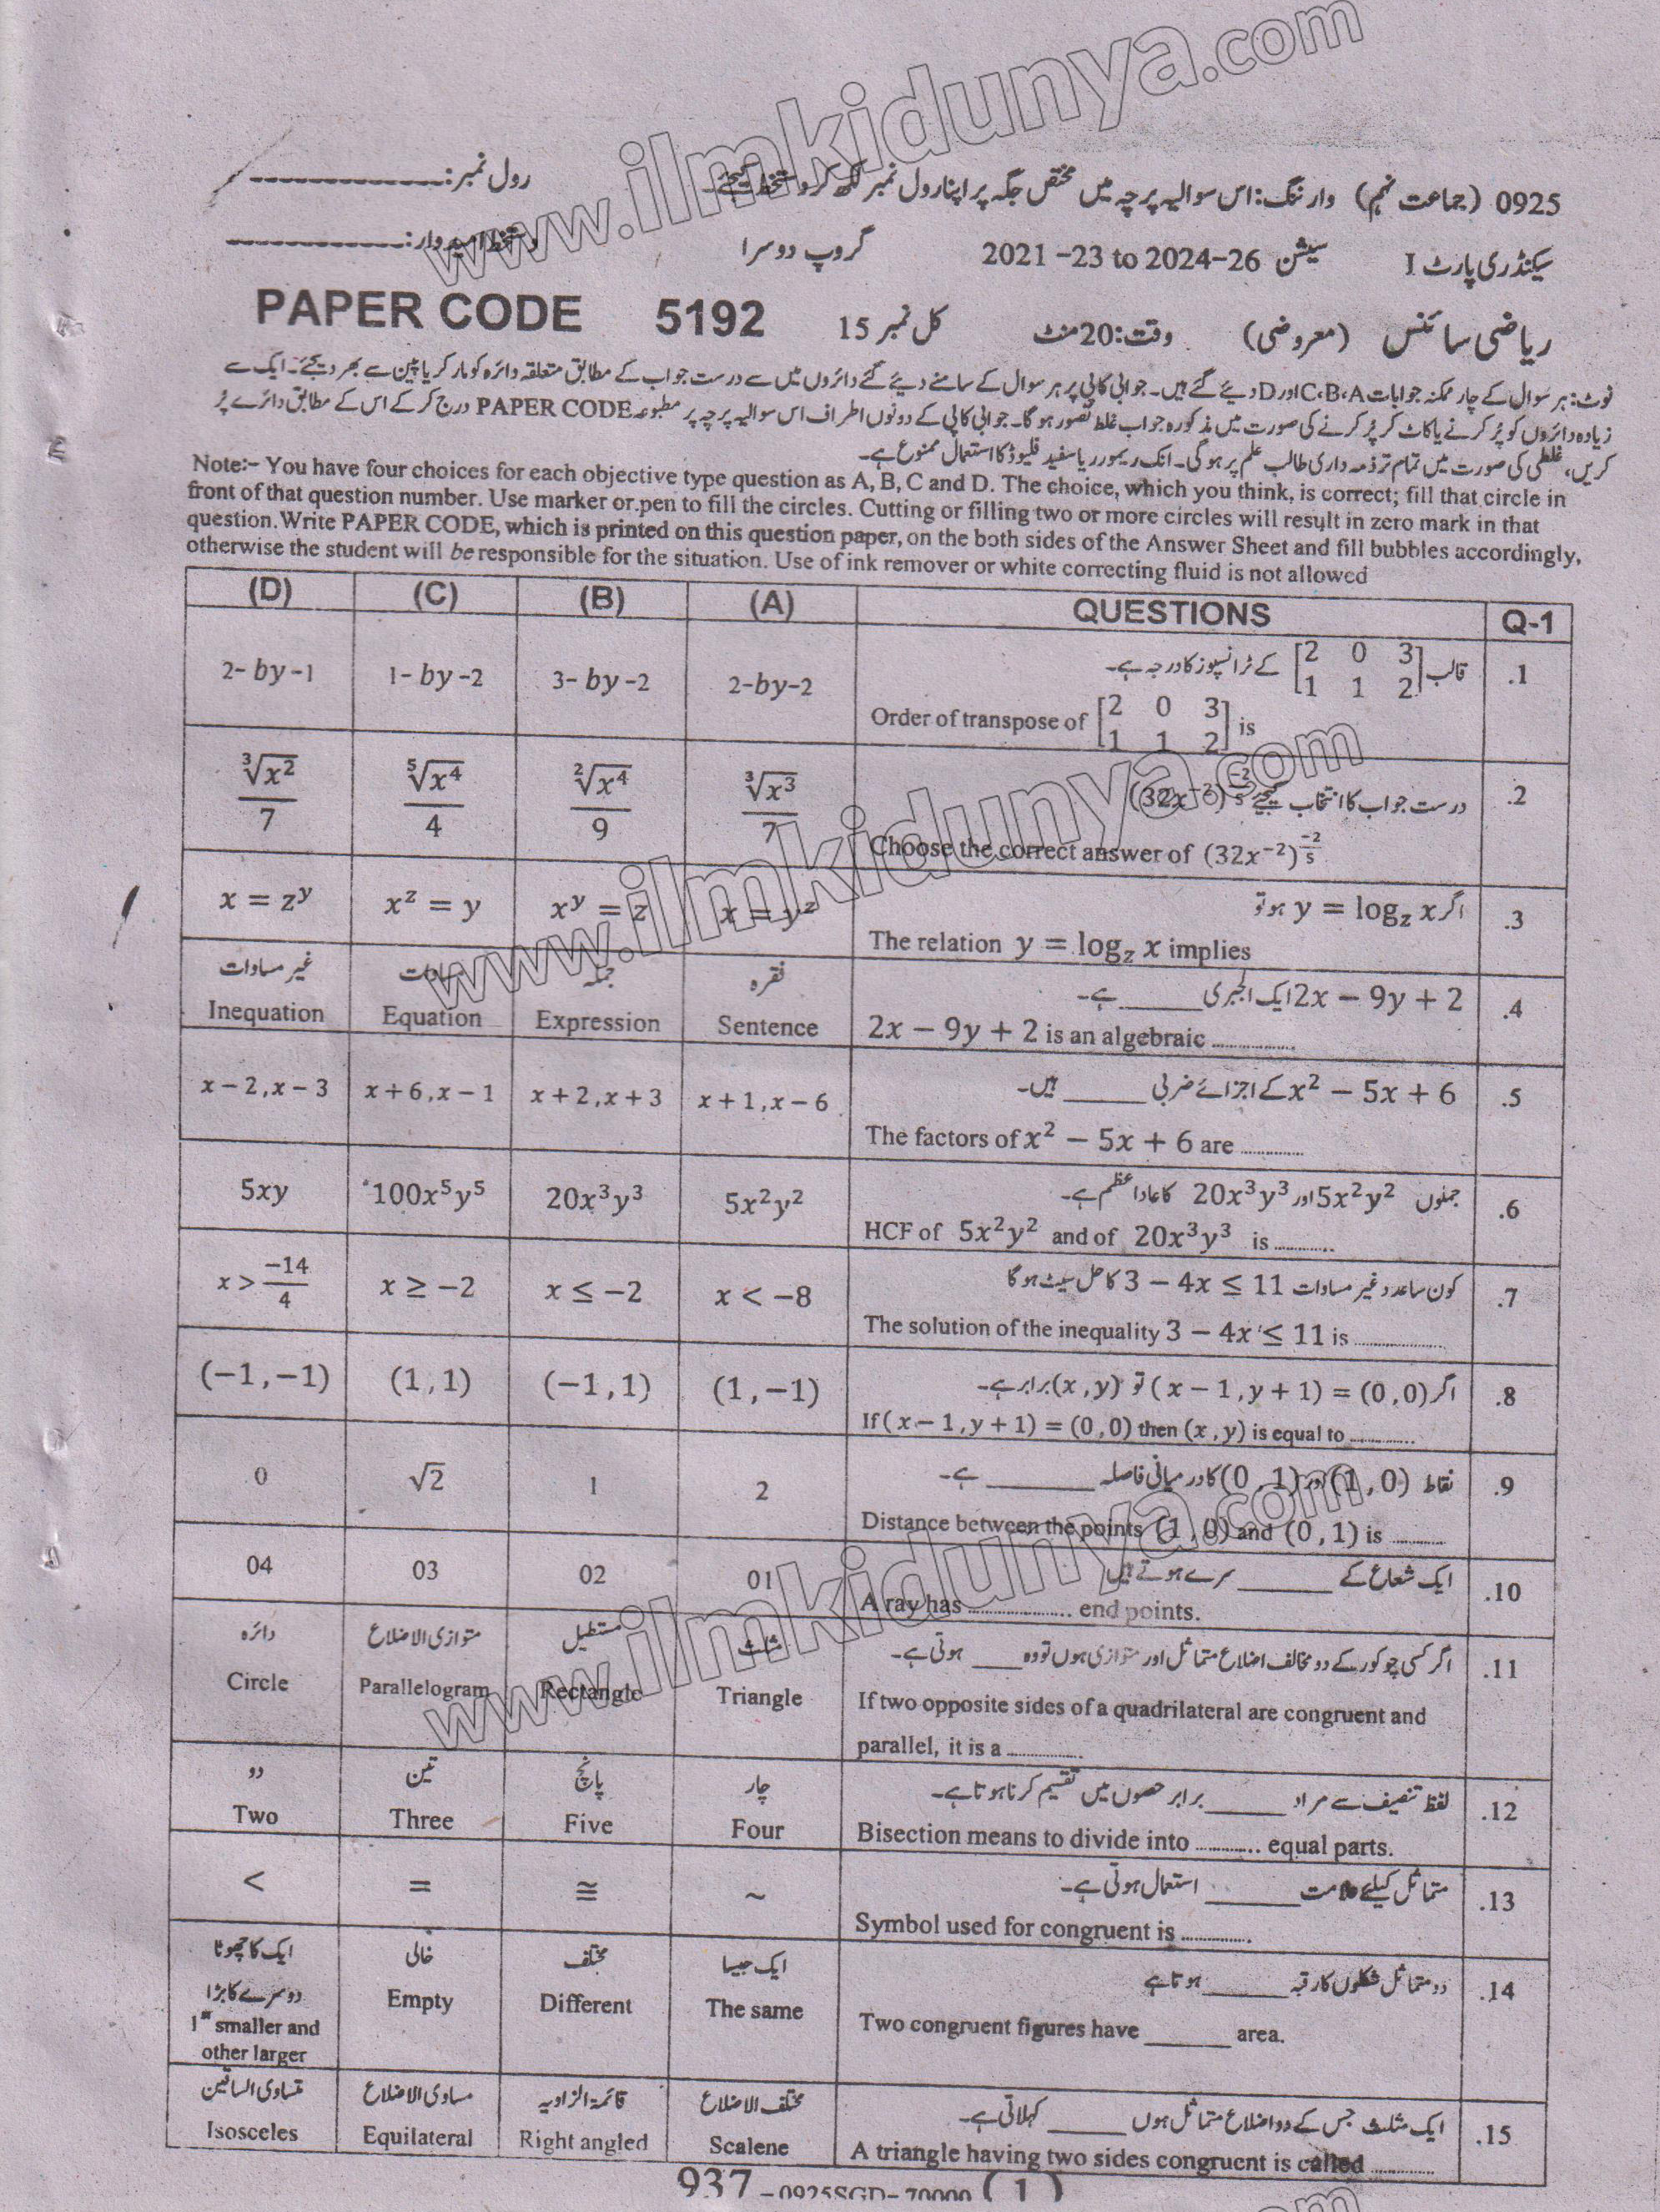 www.ilmkidunya.com
0925 (جماعت نہم) وارننگ: اس سوالیہ پرچہ میں مختص جگہ پر اپنا رول نمبر لکھ کر دستخط کیجئے۔ رول نمبر:
سیکنڈری پارٹ I سیشن 2021 -23 to 2024-26 گروپ دوسرا دستخط امیدوار:
ریاضی سائنس (معروضی) وقت: 20 منٹ کل نمبر 15 PAPER CODE 5192
نوٹ: ہر سوال کے چار ممکنہ جوابات A،B،C اور D دیئے گئے ہیں۔ جوابی کاپی پر ہر سوال کے سامنے دیئے گئے دائروں میں سے درست جواب کے مطابق متعلقہ دائرہ کو مارکر یا پین سے بھر دیجئے۔ ایک سے
زیادہ دائروں کو پُر کرنے یا کاٹ کر پُر کرنے کی صورت میں مذکورہ جواب غلط تصور ہو گا۔ جوابی کاپی کے دونوں اطراف اس سوالیہ پرچہ پر مطبوعہ PAPER CODE درج کر کے اس کے مطابق دائرے پُر
کریں، غلطی کی صورت میں تمام تر ذمہ داری طالب علم پر ہو گی۔ انک ریموور یا سفید فلیوڈ کا استعمال ممنوع ہے۔
Note:- You have four choices for each objective type question as A, B, C and D. The choice, which you think, is correct; fill that circle in
front of that question number. Use marker or pen to fill the circles. Cutting or filling two or more circles will result in zero mark in that
question. Write PAPER CODE, which is printed on this question paper, on the both sides of the Answer Sheet and fill bubbles accordingly,
otherwise the student will be responsible for the situation. Use of ink remover or white correcting fluid is not allowed
(D) (C) (B) (A) QUESTIONS Q-1
قالب [2 0 3; 1 1 2] کے ٹرانسپوز کا درجہ ہے۔ .1
2- by -1 1- by -2 3- by -2 2-by-2
Order of transpose of [2 0 3; 1 1 2] is
درست جواب کا انتخاب کیجئے (32x⁻²)^(-2/5) .2
∛x²/7 ⁵√x⁴/4 ²√x⁴/9 ∛x³/7
Choose the correct answer of (32x⁻²)^(-2/5)
اگر y = log_z x ہو تو .3
x = z^y x^z = y x^y = z x = y^z
The relation y = log_z x implies
2x − 9y + 2 ایک الجبری ____ ہے۔ .4
غیر مساوات مساوات جملہ فقرہ
Inequation Equation Expression Sentence
2x − 9y + 2 is an algebraic ............
x² − 5x + 6 کے اجزائے ضربی ____ ہیں۔ .5
x − 2, x − 3 x + 6, x − 1 x + 2, x + 3 x + 1, x − 6
The factors of x² − 5x + 6 are ............
جملوں 5x²y² اور 20x³y³ کا عاد اعظم ہے۔ .6
5xy 100x⁵y⁵ 20x³y³ 5x²y²
HCF of 5x²y² and of 20x³y³ is ............
کون سا عدد غیر مساوات 3 − 4x ≤ 11 کا حل سیٹ ہو گا .7
x > −14/4 x ≥ −2 x ≤ −2 x < −8
The solution of the inequality 3 − 4x ≤ 11 is ............
اگر (x − 1, y + 1) = (0, 0) تو (x, y) برابر ہے۔ .8
(−1, −1) (1, 1) (−1, 1) (1, −1)
If (x − 1, y + 1) = (0, 0) then (x, y) is equal to ............
نقاط (1, 0) اور (0, 1) کا درمیانی فاصلہ ____ ہے۔ .9
0 √2 1 2
Distance between the points (1, 0) and (0, 1) is ............
ایک شعاع کے ____ سرے ہوتے ہیں .10
04 03 02 01
A ray has ............ end points.
اگر کسی چوکور کے دو مخالف اضلاع متماثل اور متوازی ہوں تو وہ ____ ہوتی ہے۔ .11
دائرہ متوازی الاضلاع مستطیل مثلث
Circle Parallelogram Rectangle Triangle
If two opposite sides of a quadrilateral are congruent and
parallel, it is a ............
لفظ تنصیف سے مراد ____ برابر حصوں میں تقسیم کرنا ہوتا ہے۔ .12
دو تین پانچ چار
Two Three Five Four
Bisection means to divide into ............ equal parts.
متماثل کیلئے علامت ____ استعمال ہوتی ہے۔ .13
< = ≅ ~
Symbol used for congruent is ............
دو متماثل شکلوں کا رقبہ ____ ہوتا ہے .14
ایک کا چھوٹا دوسرے کا بڑا خالی مختلف ایک جیسا
1st smaller and other larger Empty Different The same
Two congruent figures have ______ area.
ایک مثلث جس کے دو اضلاع متماثل ہوں ____ کہلاتی ہے۔ .15
متساوی الساقین مساوی الاضلاع قائمۃ الزاویہ مختلف الاضلاع
Isosceles Equilateral Right angled Scalene
A triangle having two sides congruent is called ............
937 -0925SGD-70000 (1)
www.ilmkidunya.com
www.ilmkidunya.com